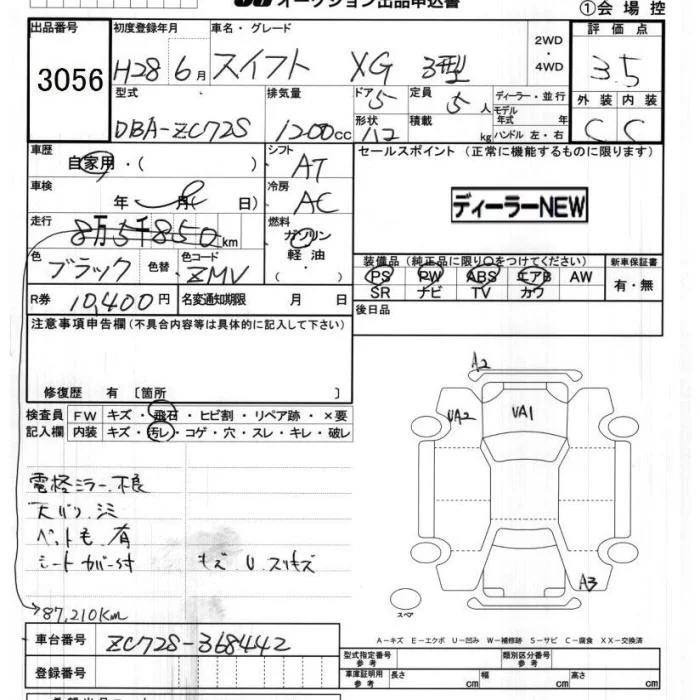 オークション出品申込書
①会場控
出品番号 初度登録年月 車名・グレード 2WD・4WD 評価点
3056 H28 6月 スイフト XG 3型 3.5
型式 排気量 ドア 定員 ディーラー・並行 外装 内装
5 5人 モデル年式 年
DBA-ZC72S 1200cc 形状 積載 kg ハンドル 左・右 C C
車歴 自家用・( ) シフト AT セールスポイント (正常に機能するものに限ります)
車検 年 月( 日) 冷房 AC ディーラーNEW
走行 8万5千850km 燃料 ガソリン・軽油・( )
装備品(純正品に限り〇をつけてください) 新車保証書
色 ブラック 色替 色コード ZMV PS PW ABS エアB AW 有・無
SR ナビ TV カワ
R券 10,400円 名変通知期限 月 日 後日品
注意事項申告欄(不具合内容等は具体的に記入して下さい)
修復歴 有 〔箇所 〕
A2
検査員 FW キズ・飛石・ヒビ割・リペア跡・×要
記入欄 内装 キズ・汚レ・コゲ・穴・スレ・キレ・破レ
UA2 UA1
電格ミラー不良
天バリ シミ
ペット毛 有
シートカバー付 キズ U. スリキズ
A3
スペア
→87,210Km
車台番号 ZC72S-368442
A-キズ E-エクボ U-凹み W-補修跡 S-サビ C-腐食 XX-交換済
登録番号 型式指定番号 参考 類別区分番号 参考
車庫証明用 参考 長さ cm 幅 cm 高さ cm